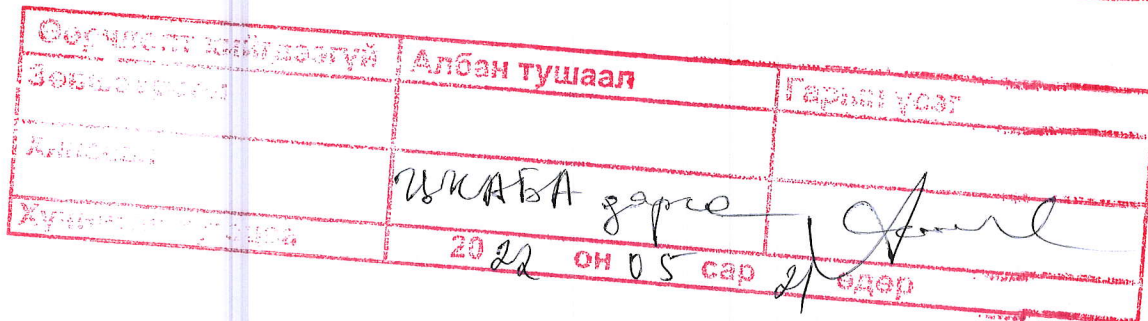 Өөрчлөлт хийгдээгүй Албан тушаал Гарын үсэг
Зөвшөөрсөн
Ажилласан
ЦКАБА дарга
Хүчинтэй хугацаа 2022 он 05 сар 21 өдөр